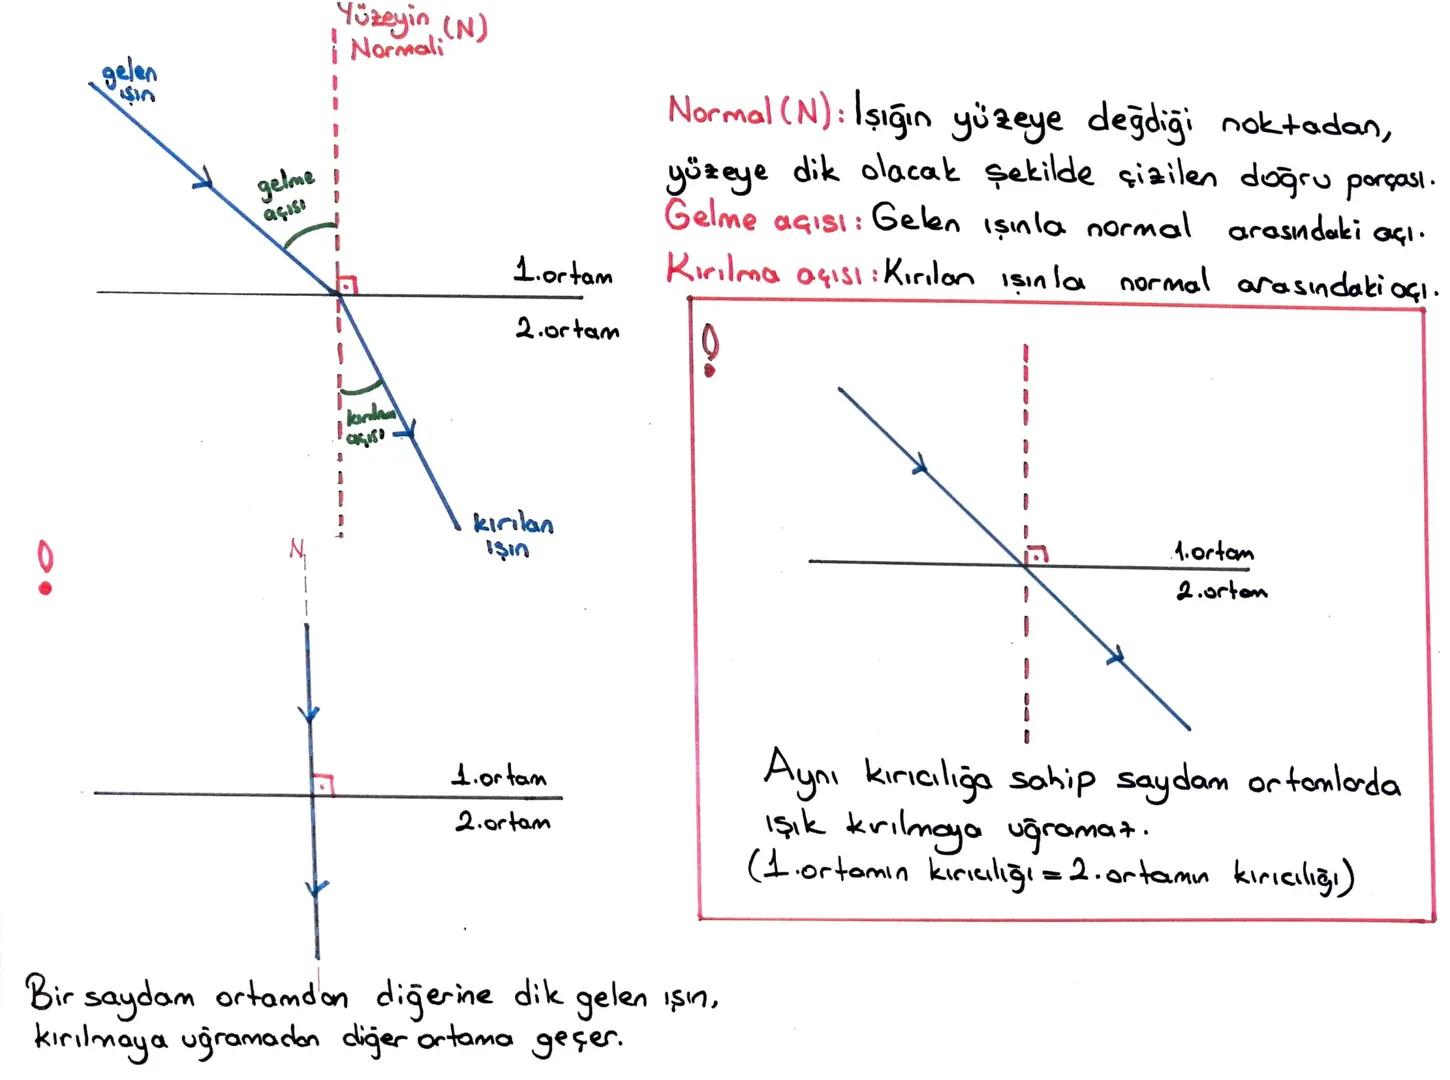 Yüzeyin (N)
Normali
gelen
ışın
gelme
açısı
1.ortam
2.ortam
kırılma
açısı
kırılan
ışın
Normal (N): Işığın yüzeye değdiği noktadan,
yüzeye dik olacak şekilde çizilen doğru parçası.
Gelme açısı: Gelen ışınla normal arasındaki açı.
Kırılma açısı: Kırılan ışınla normal arasındaki açı.
!
1.ortam
2.ortam
Aynı kırıcılığa sahip saydam ortamlarda
ışık kırılmaya uğramaz.
(1.ortamın kırıcılığı = 2.ortamın kırıcılığı)
!
N
1.ortam
2.ortam
Bir saydam ortamdan diğerine dik gelen ışın,
kırılmaya uğramadan diğer ortama geçer.